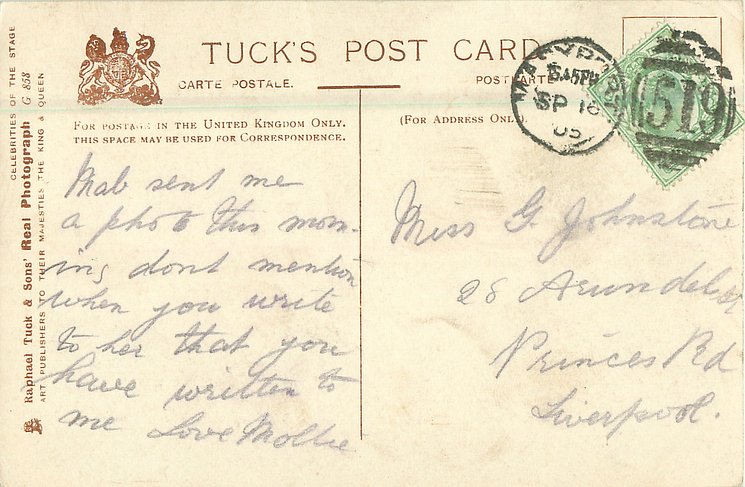 TUCK'S POST CARD
CARTE POSTALE. POSTKARTE
FOR POSTAGE IN THE UNITED KINGDOM ONLY.
THIS SPACE MAY BE USED FOR CORRESPONDENCE.
(FOR ADDRESS ONLY.)
CELEBRITIES OF THE STAGE
Raphael Tuck & Sons' Real Photograph G 858
ART PUBLISHERS TO THEIR MAJESTIES THE KING & QUEEN
5.45PM
SP 16
05
519
Mab sent me
a photo this morn-
ing dont mention
when you write
to her that you
have written to
me Love Mollie
Miss G. Johnstone
28 Arundel St
Princes Rd
Liverpool.